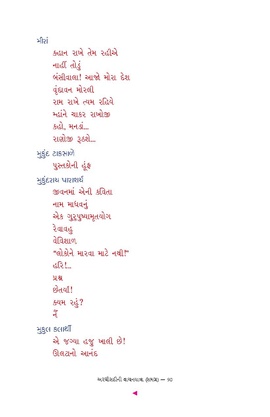 મીરાં
કહાન રાખે તેમ રહીએ
નાહીં તોડું
બંસીવાલા! આજો મોરા દેશ
વૃંદાવન મોરલી
રામ રાખે ત્યમ રહિવે
મ્હાંને ચાકર રાખોજી
કહો, મનડાં...
રાણોજી રૂઠશે...
મુકુંદ ટાકસાળે
પુસ્તકોની હૂંફ
મુકુંદરાય પારાશર્ય
જીવનમાં એની કવિતા
નામ માધવનું
એક ગુરુપુષ્યામૃતયોગ
રેવાવહુ
વેવિશાળ
"લોકોને મારવા માટે નથી!"
હરિ!...
પ્રશ્ન
છેતર્યા!
ક્યમ રહું?
નૈં
મુકુલ કલાર્થી
એ જગ્યા હજુ ખાલી છે!
ઊલટાનો આનંદ
અરધીસદીની વાચનયાત્રા (સમગ્ર) — ૬૦